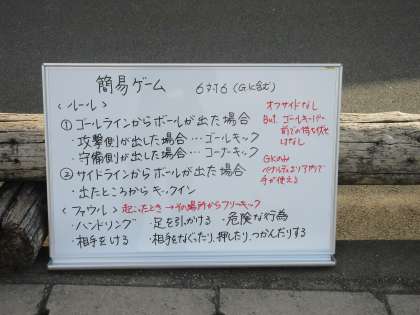 簡易ゲーム 6対6 (GK含む)
<ルール>
① ゴールラインからボールが出た場合
・攻撃側が出した場合…ゴールキック
・守備側が出した場合…コーナーキック
② サイドラインからボールが出た場合
・出たところからキックイン
オフサイドなし
But, ゴールキーパー
前での待ち伏せ
はなし
GKのみ
ペナルティエリア内で
手が使える
<ファウル> 起こったとき→その場所からフリーキック
・ハンドリング ・足を引っかける ・危険な行為
・相手をける ・相手をなぐったり、押したり、つかんだりする